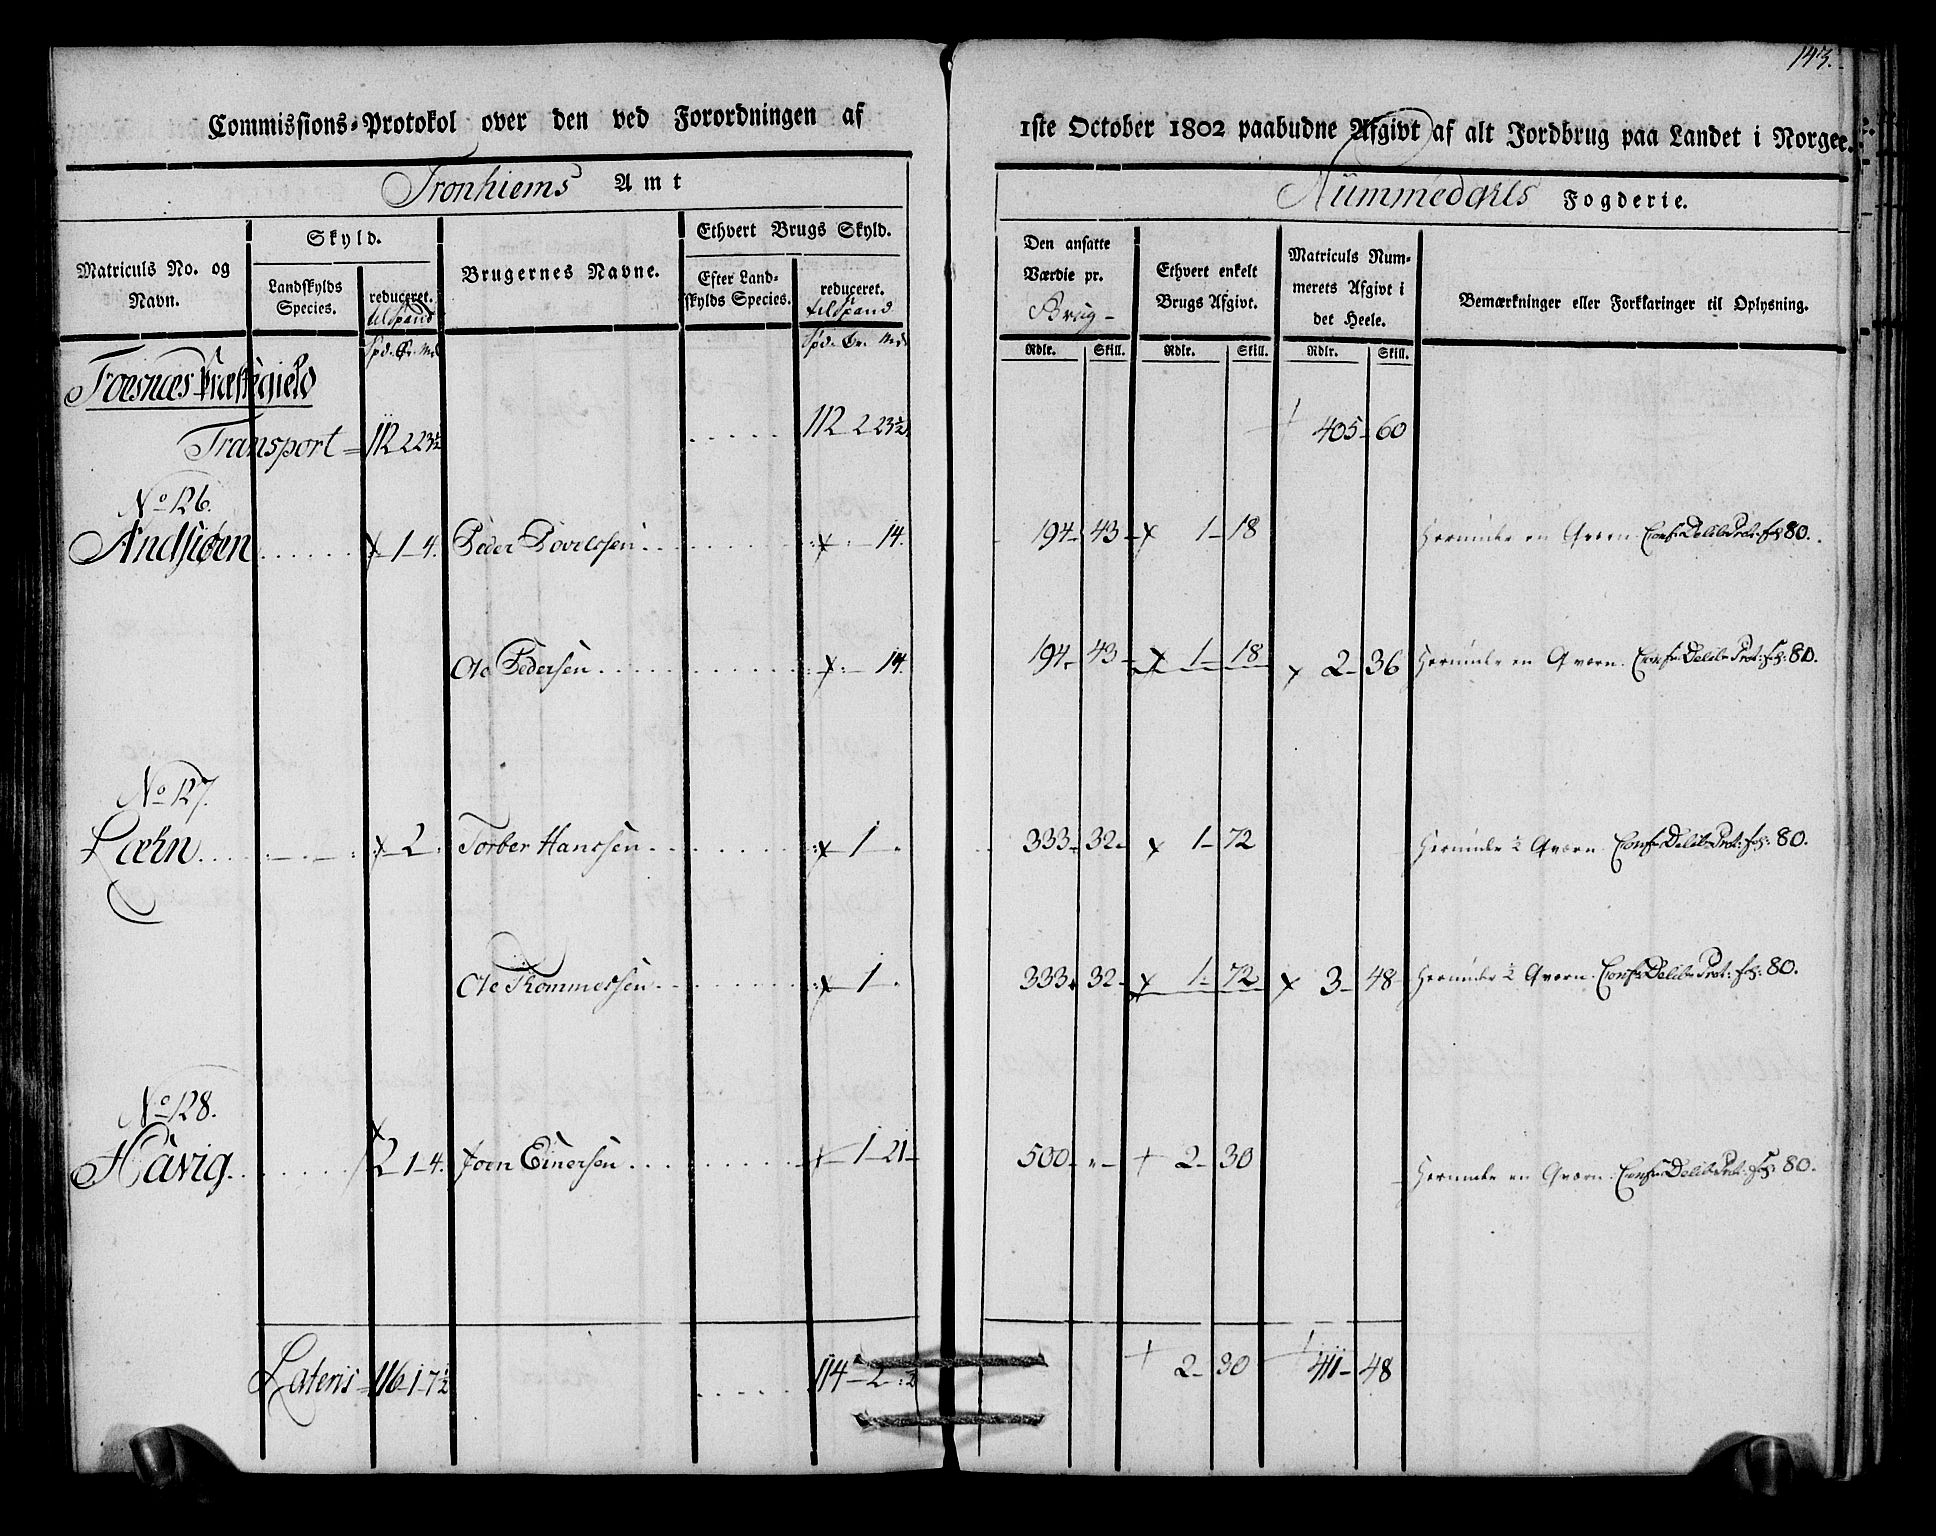 143.
Commissions-Protokol over den ved Forordningen af 1ste October 1802 paabudne Afgivt af alt Jordbrug paa Landet i Norge.
Tronhiems Amt Nummedahls Fogderie.
Matriculs No. og Navn. Skyld. Brugernes Navne. Ethvert Brugs Skyld. Den ansatte Værdie pr. Brug- Ethvert enkelt Brugs Afgivt. Matriculs Nummerets Afgivt i det Heele. Bemærkninger eller Forklaringer til Oplysning.
Landskylds Species. reduceret. til Spand Efter Landskylds Species. reduceret. til Spand
Spd. Ør. Md. Spd. Ør. Md. Rdlr. Skill. Rdlr. Skill. Rdlr. Skill.
Foesnæs Præstegield
Transport = 112 2 23½ 112 2 23½ 405 - 60
No 126.
Andsiøen 1 - 4. Peder Povelssen 14. 194 - 43 - x 1 - 18 Herunder en Qværn. Conf. Delib. Prot. fol. 80.
Ole Pedersen 14. 194 - 43 - x 1 - 18 x 2 - 36 Herunder en Qværn. Conf. Delib. Prot: fol: 80.
No 127.
Læhn x 2 Torber Hanssen x 1 333 - 32 - x 1 - 72 Herunder ½ Qværn. Conf. Delib. Prot: fol: 80.
Ole Thommessen x 1 333 32 - x 1 - 72 x 3 - 48 Herunder ½ Qværn. Conf. Delib. Prot: fol: 80.
No 128.
Havig 2 1 - 4. Joen Einersen + 1 - 21 - 500 - " - + 2 - 30 Herunder en Qværn. Conf. Delib. Prot: fol: 80.
Lateris = 116 - 1 - 7½ 114 - 2 + 2 - 30 411 - 48